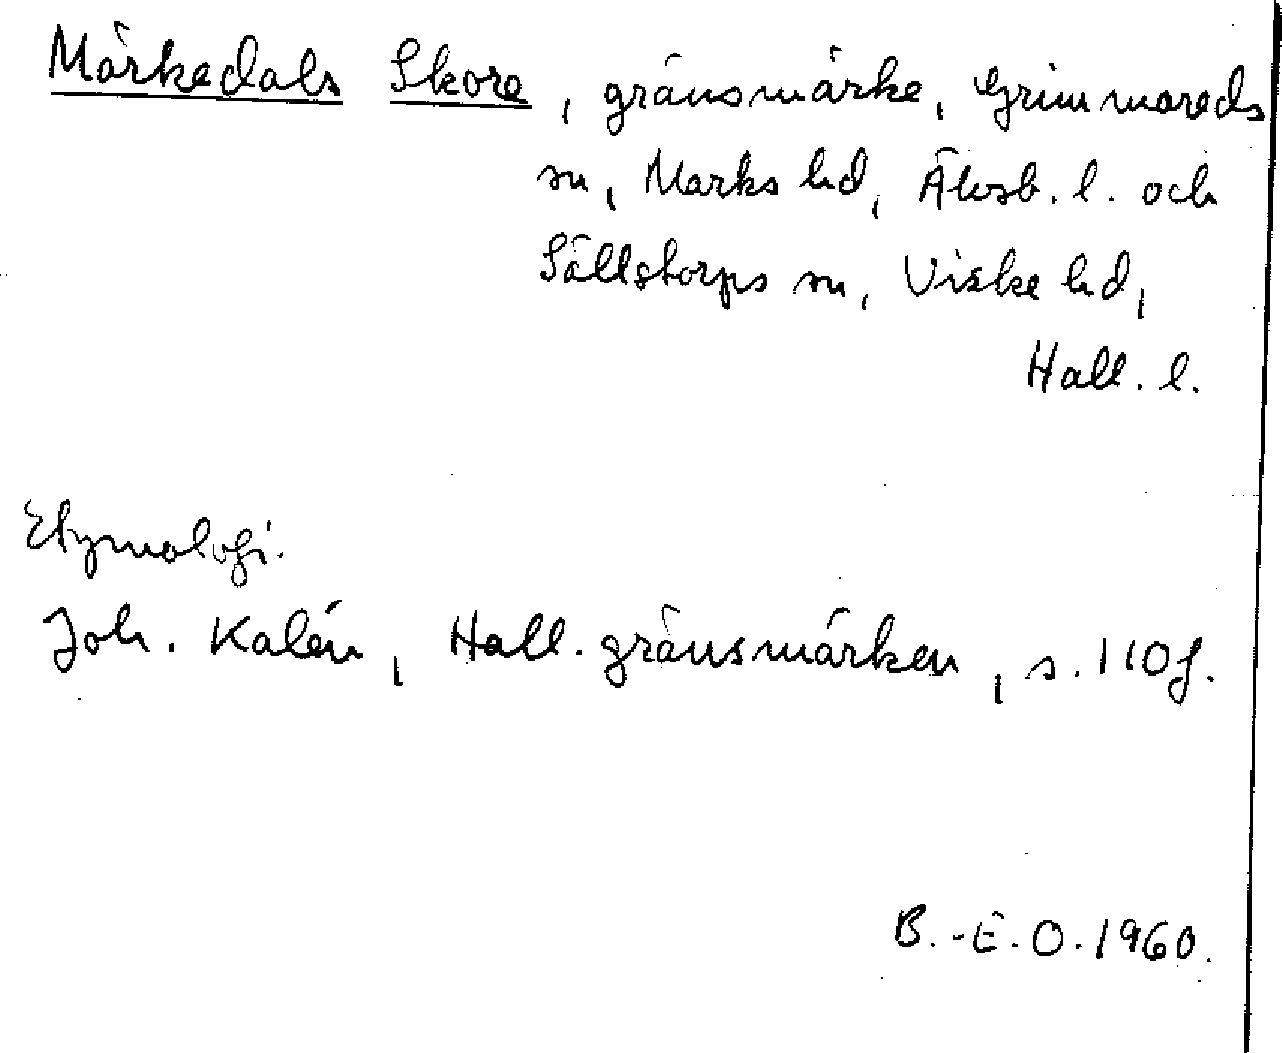 Märkedals Skore, gränsmärke, Grimmareds
sn, Marks hd, Älvsb. l. och
Sällstorps sn, Viske hd,
Hall. l.
Etymologi.
Joh. Kalén, Hall. gränsmärken, s. 110 f.
B.-E. O. 1960.